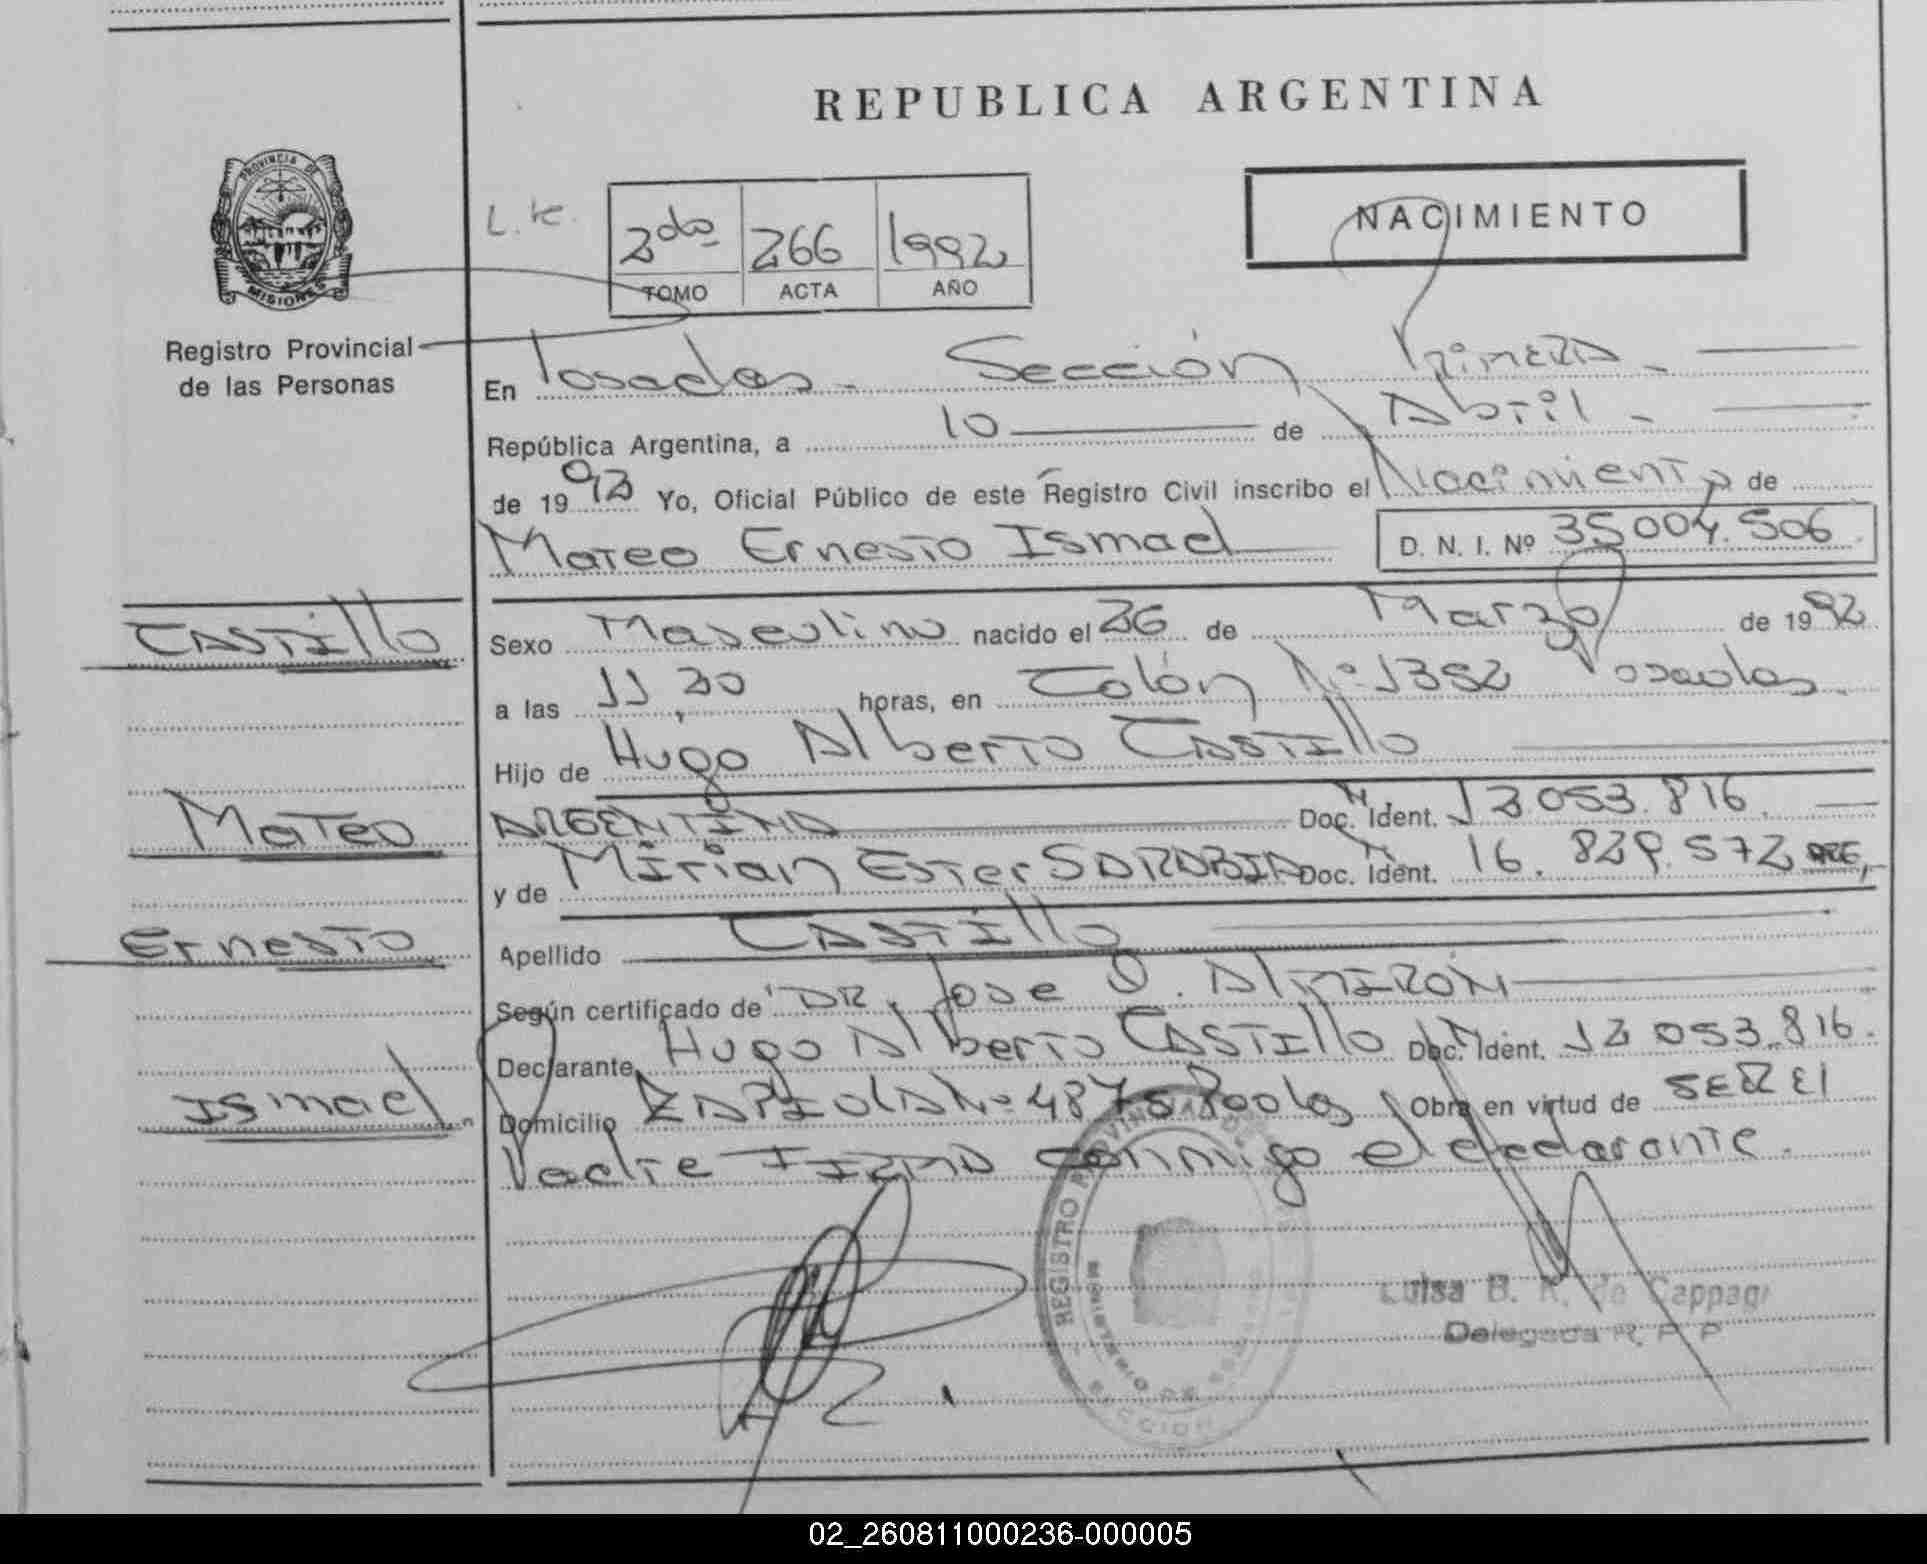 REPUBLICA ARGENTINA
PROVINCIA DE
MISIONES
Registro Provincial
de las Personas
NACIMIENTO
2do 266 1992
TOMO ACTA AÑO
En Posadas - Sección Primera -
República Argentina, a 10 de Abril -
de 1992 Yo, Oficial Público de este Registro Civil inscribo el Nacimiento de
Mateo Ernesto Ismael D. N. I. Nº 35004.506
Castillo
Sexo Masculino nacido el 26 de Marzo de 1992
a las 11,30 horas, en Colón Nº 1352 Posadas.
Hijo de Hugo Alberto Castillo
Mateo
ARGENTINA Doc. Ident. 12.053.816.
y de Mirian Ester SARABIA Doc. Ident. 16.829.572 ARG,
Ernesto
Apellido CASTillo
Según certificado de DR. Jose O. AlmIRÓN
Declarante Hugo Alberto CASTIllo Doc. Ident. 12 053.816.
Ismael.
Domicilio ZAPIOLA Nº 4875 Pdas Obra en virtud de SER El
Padre FIRMA conmigo el declarante.
REGISTRO PROVINCIAL DE
MINISTERIO DE
SECCION
Luisa B. K. de Cappagi
Delegada R. P. P
02_260811000236-000005